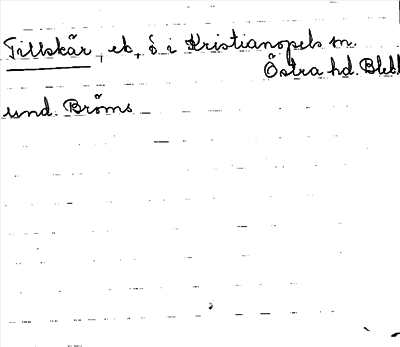 Tillskär, eb, ö i Kristianopels sn.
Östra hd. Blek
und. Bröms